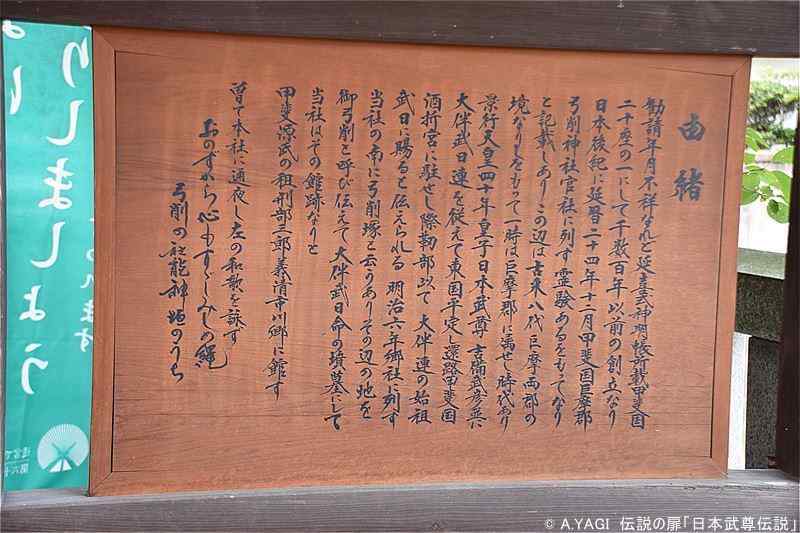 由緒
勧請年月不祥なれど延喜式神明帳所載甲斐国
二十座の一にして千数百年以前の創立なり
日本後紀に延暦二十四年十二月甲斐国巨摩郡
弓削神社官社に列す霊験あるをもってなり
と記載しありこの辺は古来八代巨摩両郡の
境なりしをもって一時は巨摩郡に属せし時代あり
景行天皇四十年皇子日本武尊吉備武彦並に
大伴武日連を従えて東国平定し還路甲斐国
酒折宮に駐せし際靭部以て大伴連の始祖
武日に賜ると伝えられる 明治六年郷社に列す
当社の南に弓削塚と云うありその辺の地を
御弓削と呼び伝えて大伴武日命の墳墓にして
当社はその館跡なりと
甲斐源氏の祖刑部三郎義清市川郷に館す
曽て本社に通夜し左の和歌を詠す
おのずから心もすゞしみしめ縄
弓削の社龍神垣のうち
りしましょう
© A.YAGI 伝説の扉「日本武尊伝説」